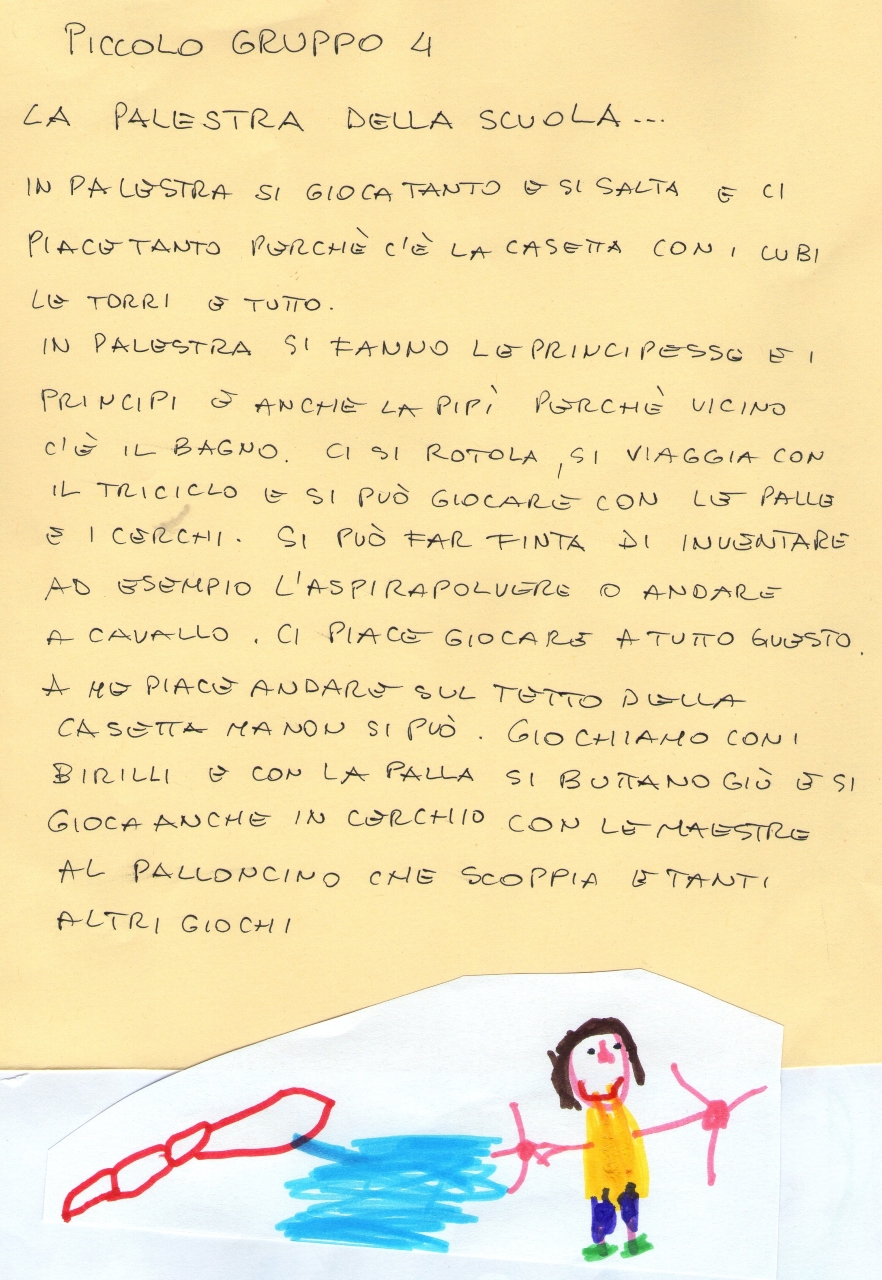 PICCOLO GRUPPO 4
LA PALESTRA DELLA SCUOLA...
IN PALESTRA SI GIOCA TANTO E SI SALTA E CI
PIACE TANTO PERCHÈ C'È LA CASETTA CON I CUBI
LE TORRI E TUTTO.
IN PALESTRA SI FANNO LE PRINCIPESSE E I
PRINCIPI E ANCHE LA PIPÌ PERCHÈ VICINO
C'È IL BAGNO. CI SI ROTOLA, SI VIAGGIA CON
IL TRICICLO E SI PUÒ GIOCARE CON LE PALLE
E I CERCHI. SI PUÒ FAR FINTA DI INVENTARE
AD ESEMPIO L'ASPIRAPOLVERE O ANDARE
A CAVALLO. CI PIACE GIOCARE A TUTTO QUESTO.
A ME PIACE ANDARE SUL TETTO DELLA
CASETTA MA NON SI PUÒ. GIOCHIAMO CON I
BIRILLI E CON LA PALLA SI BUTTANO GIÙ E SI
GIOCA ANCHE IN CERCHIO CON LE MAESTRE
AL PALLONCINO CHE SCOPPIA E TANTI
ALTRI GIOCHI